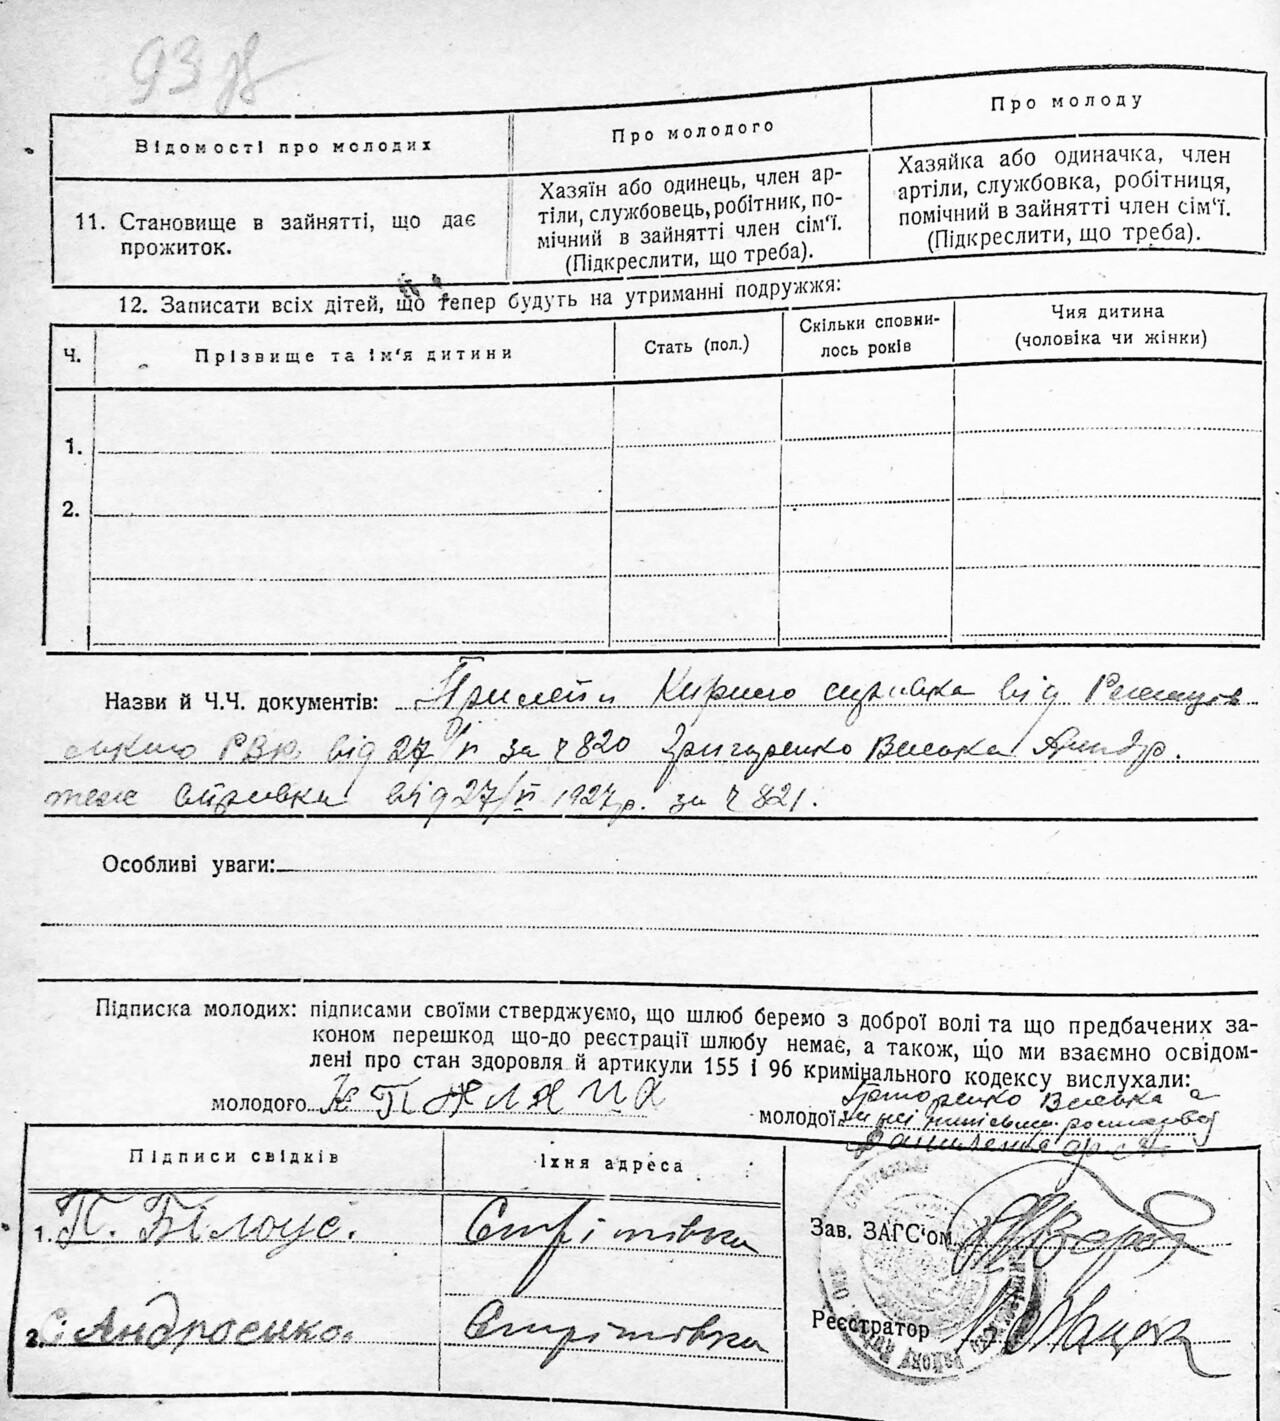 93
Відомості про молодих
Про молодого
Про молоду
11. Становище в зайнятті, що дає
прожиток.
Хазяїн або одинець, член ар-
тіли, службовець, робітник, по-
мічний в зайнятті член сім‘ї.
(Підкреслити, що треба).
Хазяйка або одиначка, член
артіли, службовка, робітниця,
помічний в зайнятті член сім‘ї.
(Підкреслити, що треба).
12. Записати всіх дітей, що тепер будуть на утриманні подружжя:
Ч.
Прізвище та ім‘я дитини
Стать (пол.)
Скільки сповни-
лось років
Чия дитина
(чоловіка чи жінки)
1.
2.
Назви й Ч.Ч. документів: Кирило справка від
РВК від 27/VI за ч 820 Григоренко Василька
теж справка від 27/VI 1927р. за ч 821.
Особливі уваги:
Підписка молодих: підписами своїми стверджуємо, що шлюб беремо з доброї волі та що предбачених за-
коном перешкод що-до реєстрації шлюбу немає, а також, що ми взаємно освідом-
лені про стан здоровля й артикули 155 і 96 кримінального кодексу вислухали:
молодого К
молодої:
Підписи свідків
їхня адреса
1. П. Білоус.
Стрітівка
Зав. ЗАГС‘ом
2. Андросенко
Стрітівка
Реєстратор